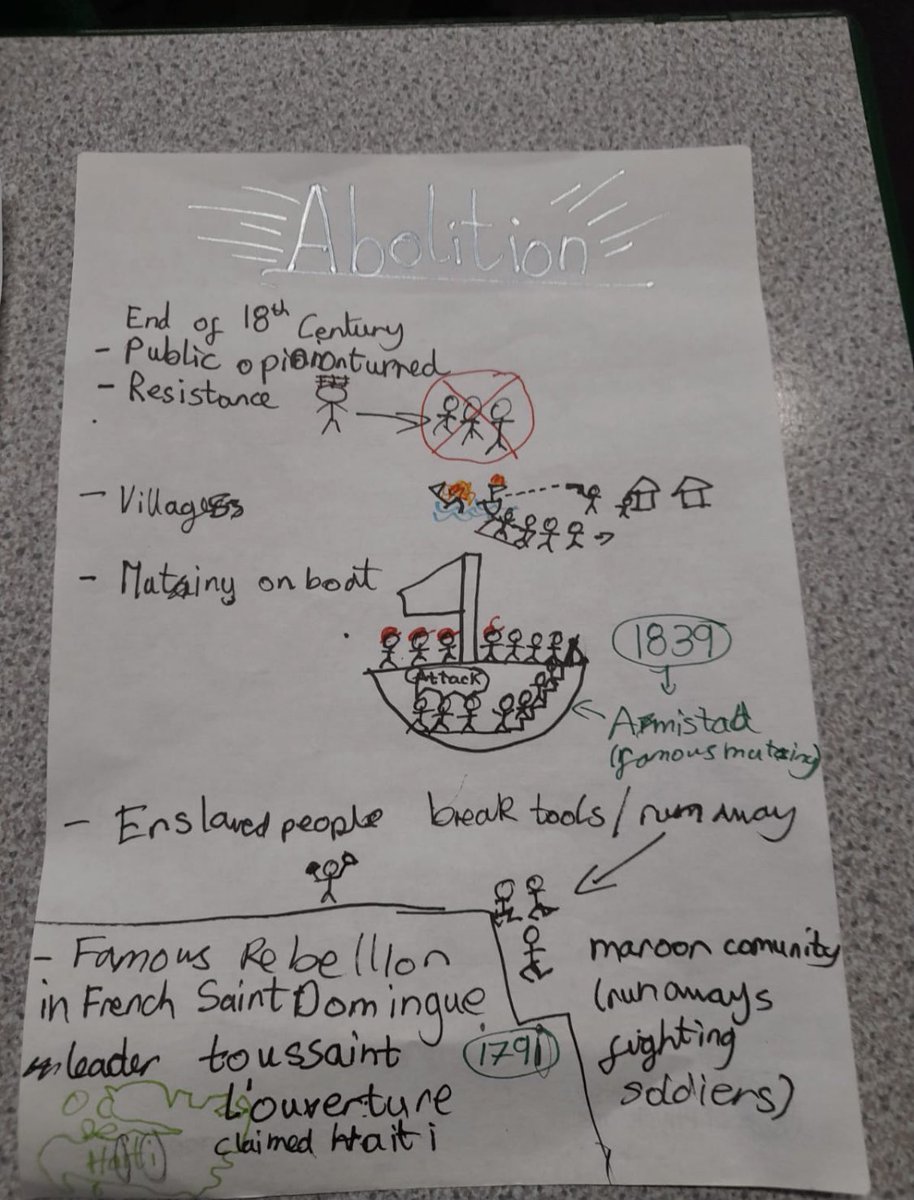 Abolition
End of 18th Century
- Public opinion turned
- Resistance
- Villages
- Matainy on boat
Attack
1839
Armistad
(famous matainy)
- Enslaved people break tools / run away
- Famous Rebellion
in French Saint Domingue
leader toussaint
L'ouverture
claimed Haiti
1791
Haiti
maroon comunity
(runaways
fighting
soldiers)